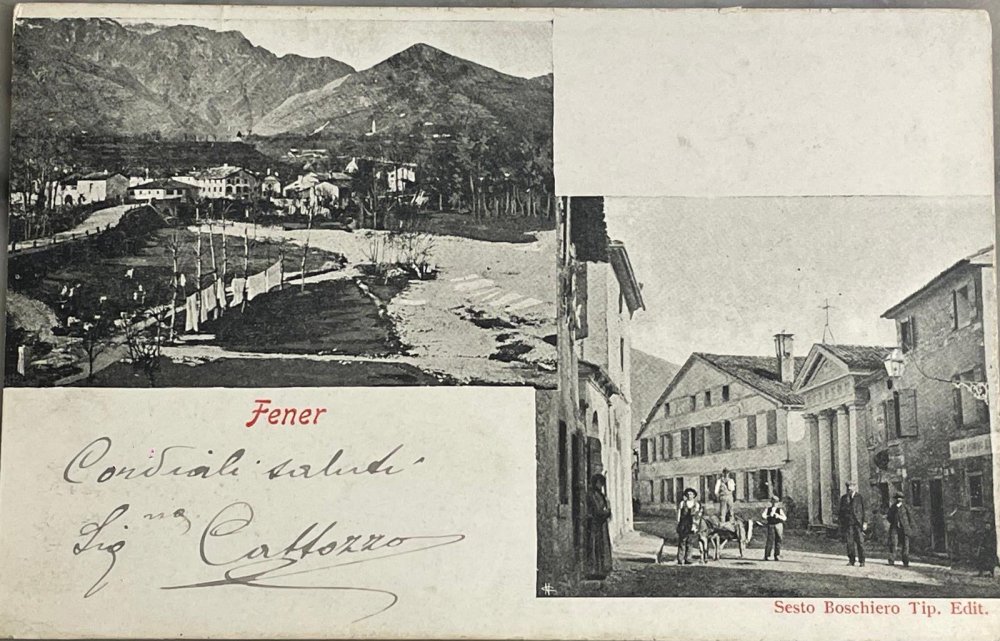 Fener
Cordiali saluti
Signa Cattozzo
Sesto Boschiero Tip. Edit.